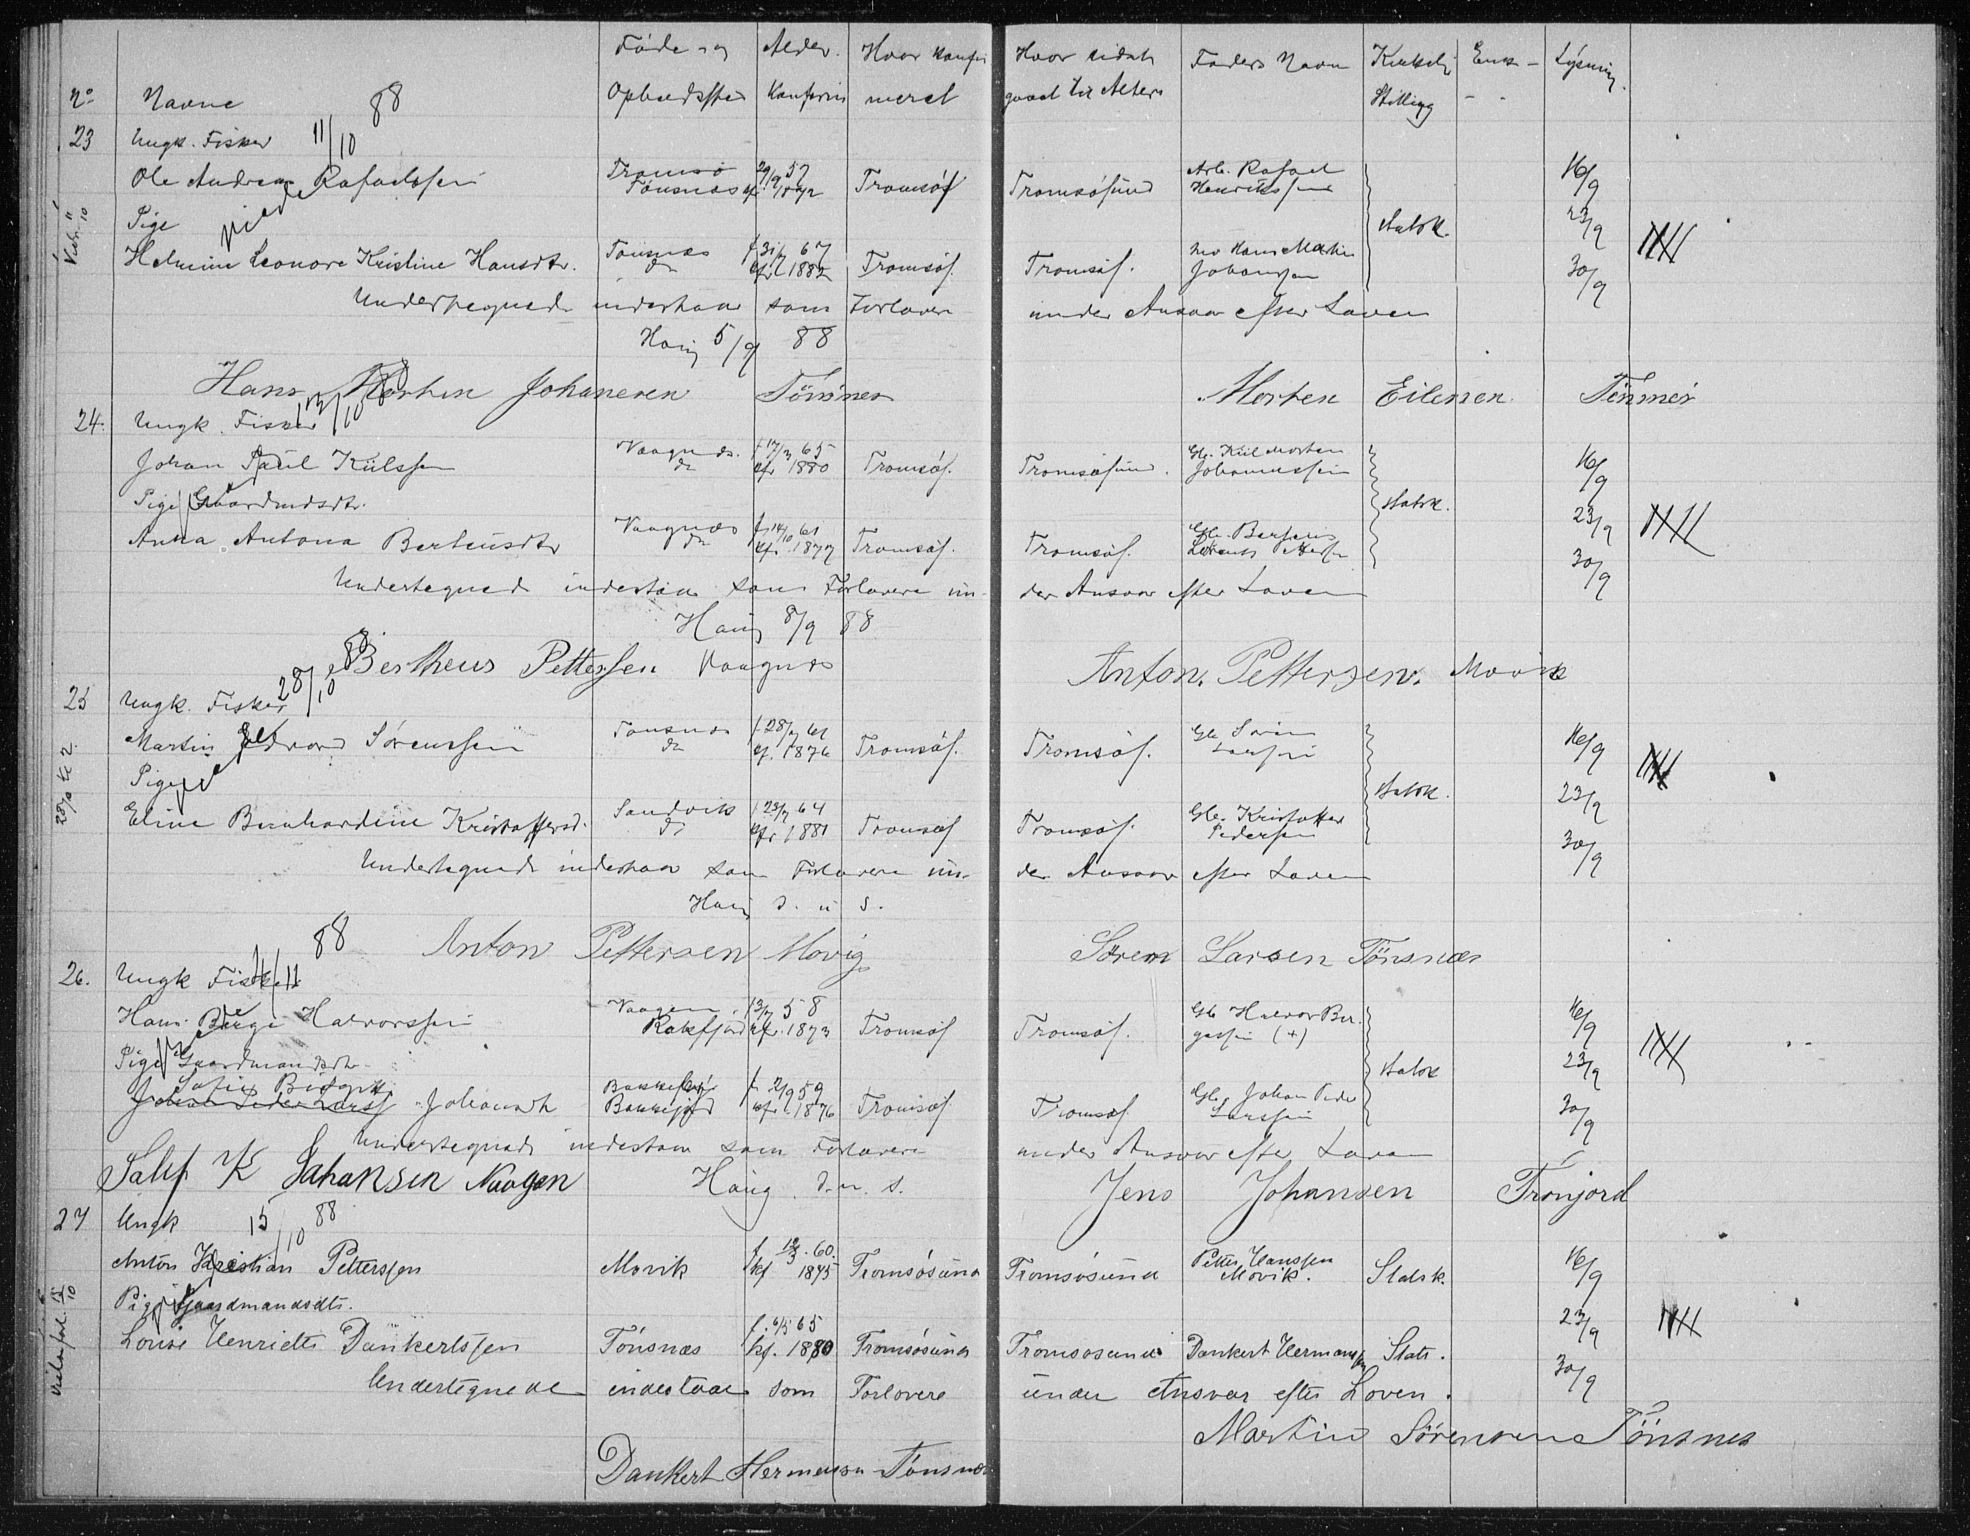 No Navne Føde- og Opholdssted Alder. Konfirm Hvor konfirmeret Hvor sidst gaaet til Alters Faders Navn Kirkelig Stilling Enke - Lysning.
88
23 Ungk. Fisker 11/10
Ole Andreas Rafaelssen Tromsø Tønsnæs 29/9 57 Tromsøs Tromsøsund Arb. Rafael Henrikssen 16/9
Pige Statsk. 23/9
Helmine Leonore Kristine Hansdtr. Tønsnæs do f 67 kf. 1882 Tromsøs. Tromsøs. Hans Martin Johanssen 30/9
Undertegnede indestaar som Forlovere under Ansvar efter Loven
Haug 5/9 88
Hans Morten Johanesen Tønsnes Morten Eilersen Tønsnes
24. Ungk. Fisker 13/10 88
Johan Paul Kiilssen Vaagnæs. do f 17/3 65 kf. 1880 Tromsøs. Tromsøsund. Gb. Kiil Morten Johannessen 16/9
Pige Gaardmdsdtr. Statsk. 23/9
Anna Antona Berteusdtr Vaagnæs do f. 14/10 61 kf. 1877 Tromsøs. Tromsøs. Gb. Berteus 30/9
Undertegnede indestaar som Forlovere under Ansvar efter Loven
Haug 8/9 88
Bertheus Pettersen Vaagnæs Anton. Pettersen. Movik
25 Ungk. Fisker 28/10 88
Martin Edvard Sørenssen Tønsnæs do f 28/7 61 kf. 1876 Tromsøs. Tromsøs. Gb Søren Larssen 16/9
Pige Statsk. 23/9
Eline Bernhardine Kristoffersd. Sandvik do f 23/7 64 kf. 1881 Tromsøs Tromsøs. Gb. Kristoffer Pedersen 30/9
Undertegnede indestaar som Forlovere under Ansvar efter Loven
Haug d. u. s.
Anton Pettersen Movig Sørem Larsen Tönsnæs
26. Ungk Fisker 11/11 88
Hans Berge Halvorssen Vaagen. Rakfjord f 13/7 58 kf. 1873 Tromsøs Tromsøs. Gb Halvor Bergessen (+) 16/9
Pige Gaardmandsdtr. Statsk 23/9
Sofie Birgitte Johansdt Bakkejord f. 2/9 59 kf. 1876 Tromsøs Tromsøs Gb. Johan Peder Larssen 30/9
Undertegnede indestaar som Forlovere under Ansvar efter Loven
Johansen Haug d. u. s. Jens Johansen Tronjord
27 Ungk 15/10 88
Anton Kristian Petterssen Movik f. 12/3 60. kf 1875 Tromsøsund Tromsøsund Petter Hanssen Movik. Statsk. 16/9
Pige Gaardmandsdtr. 23/9
Louise Henriette Dankertssen Tønsnæs f. 6/5 65 kf. 1880 Tromsøsund Tromsøsund Dankert Hermanssen Stats. 30/9
Undertegnede indestaar som Forlovere under Ansvar efter Loven.
Martin Sørensen Tönsnes
Dankert Hermensen Tönsnæs